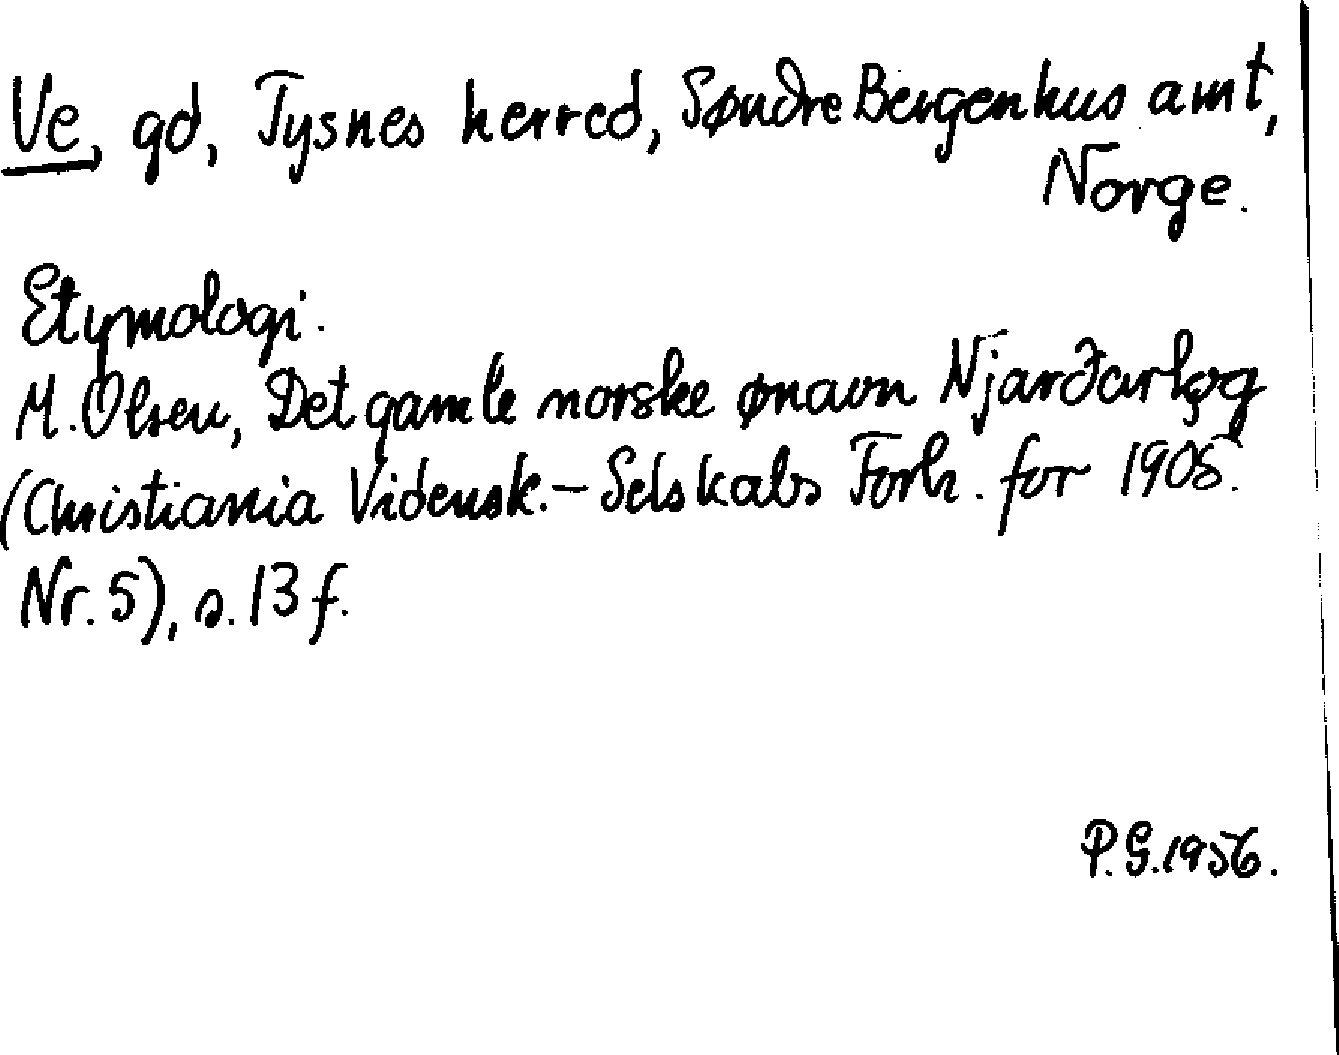 Ve, gd, Tysnes herred, Søndre Bergenhus amt,
Norge.
Etymologi.
M. Olsen, Det gamle norske ønavn Njarðarlǫg
(Christiania Vidensk.-Selskabs Forh. for 1905.
Nr. 5), s. 13 f.
P.G. 1956.